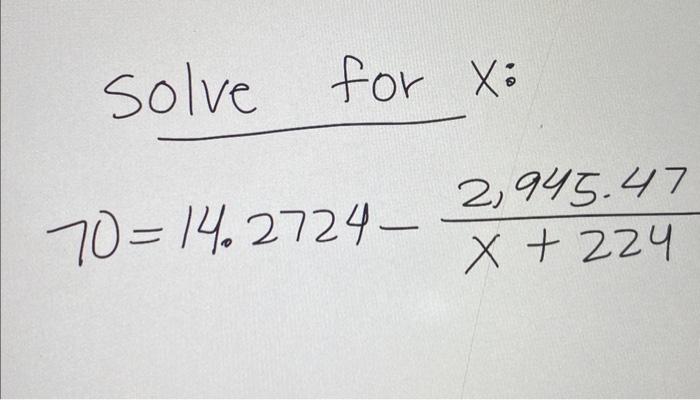 Solve for X:
70 = 14.2724 - 2,945.47 / X + 224